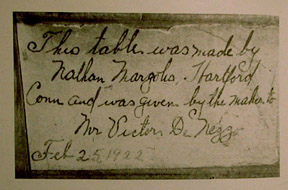 This table was made by
Nathan Margolis, Hartford,
Conn and was given by the maker to
Mr Victor De Nezzo
Feb 25 1922